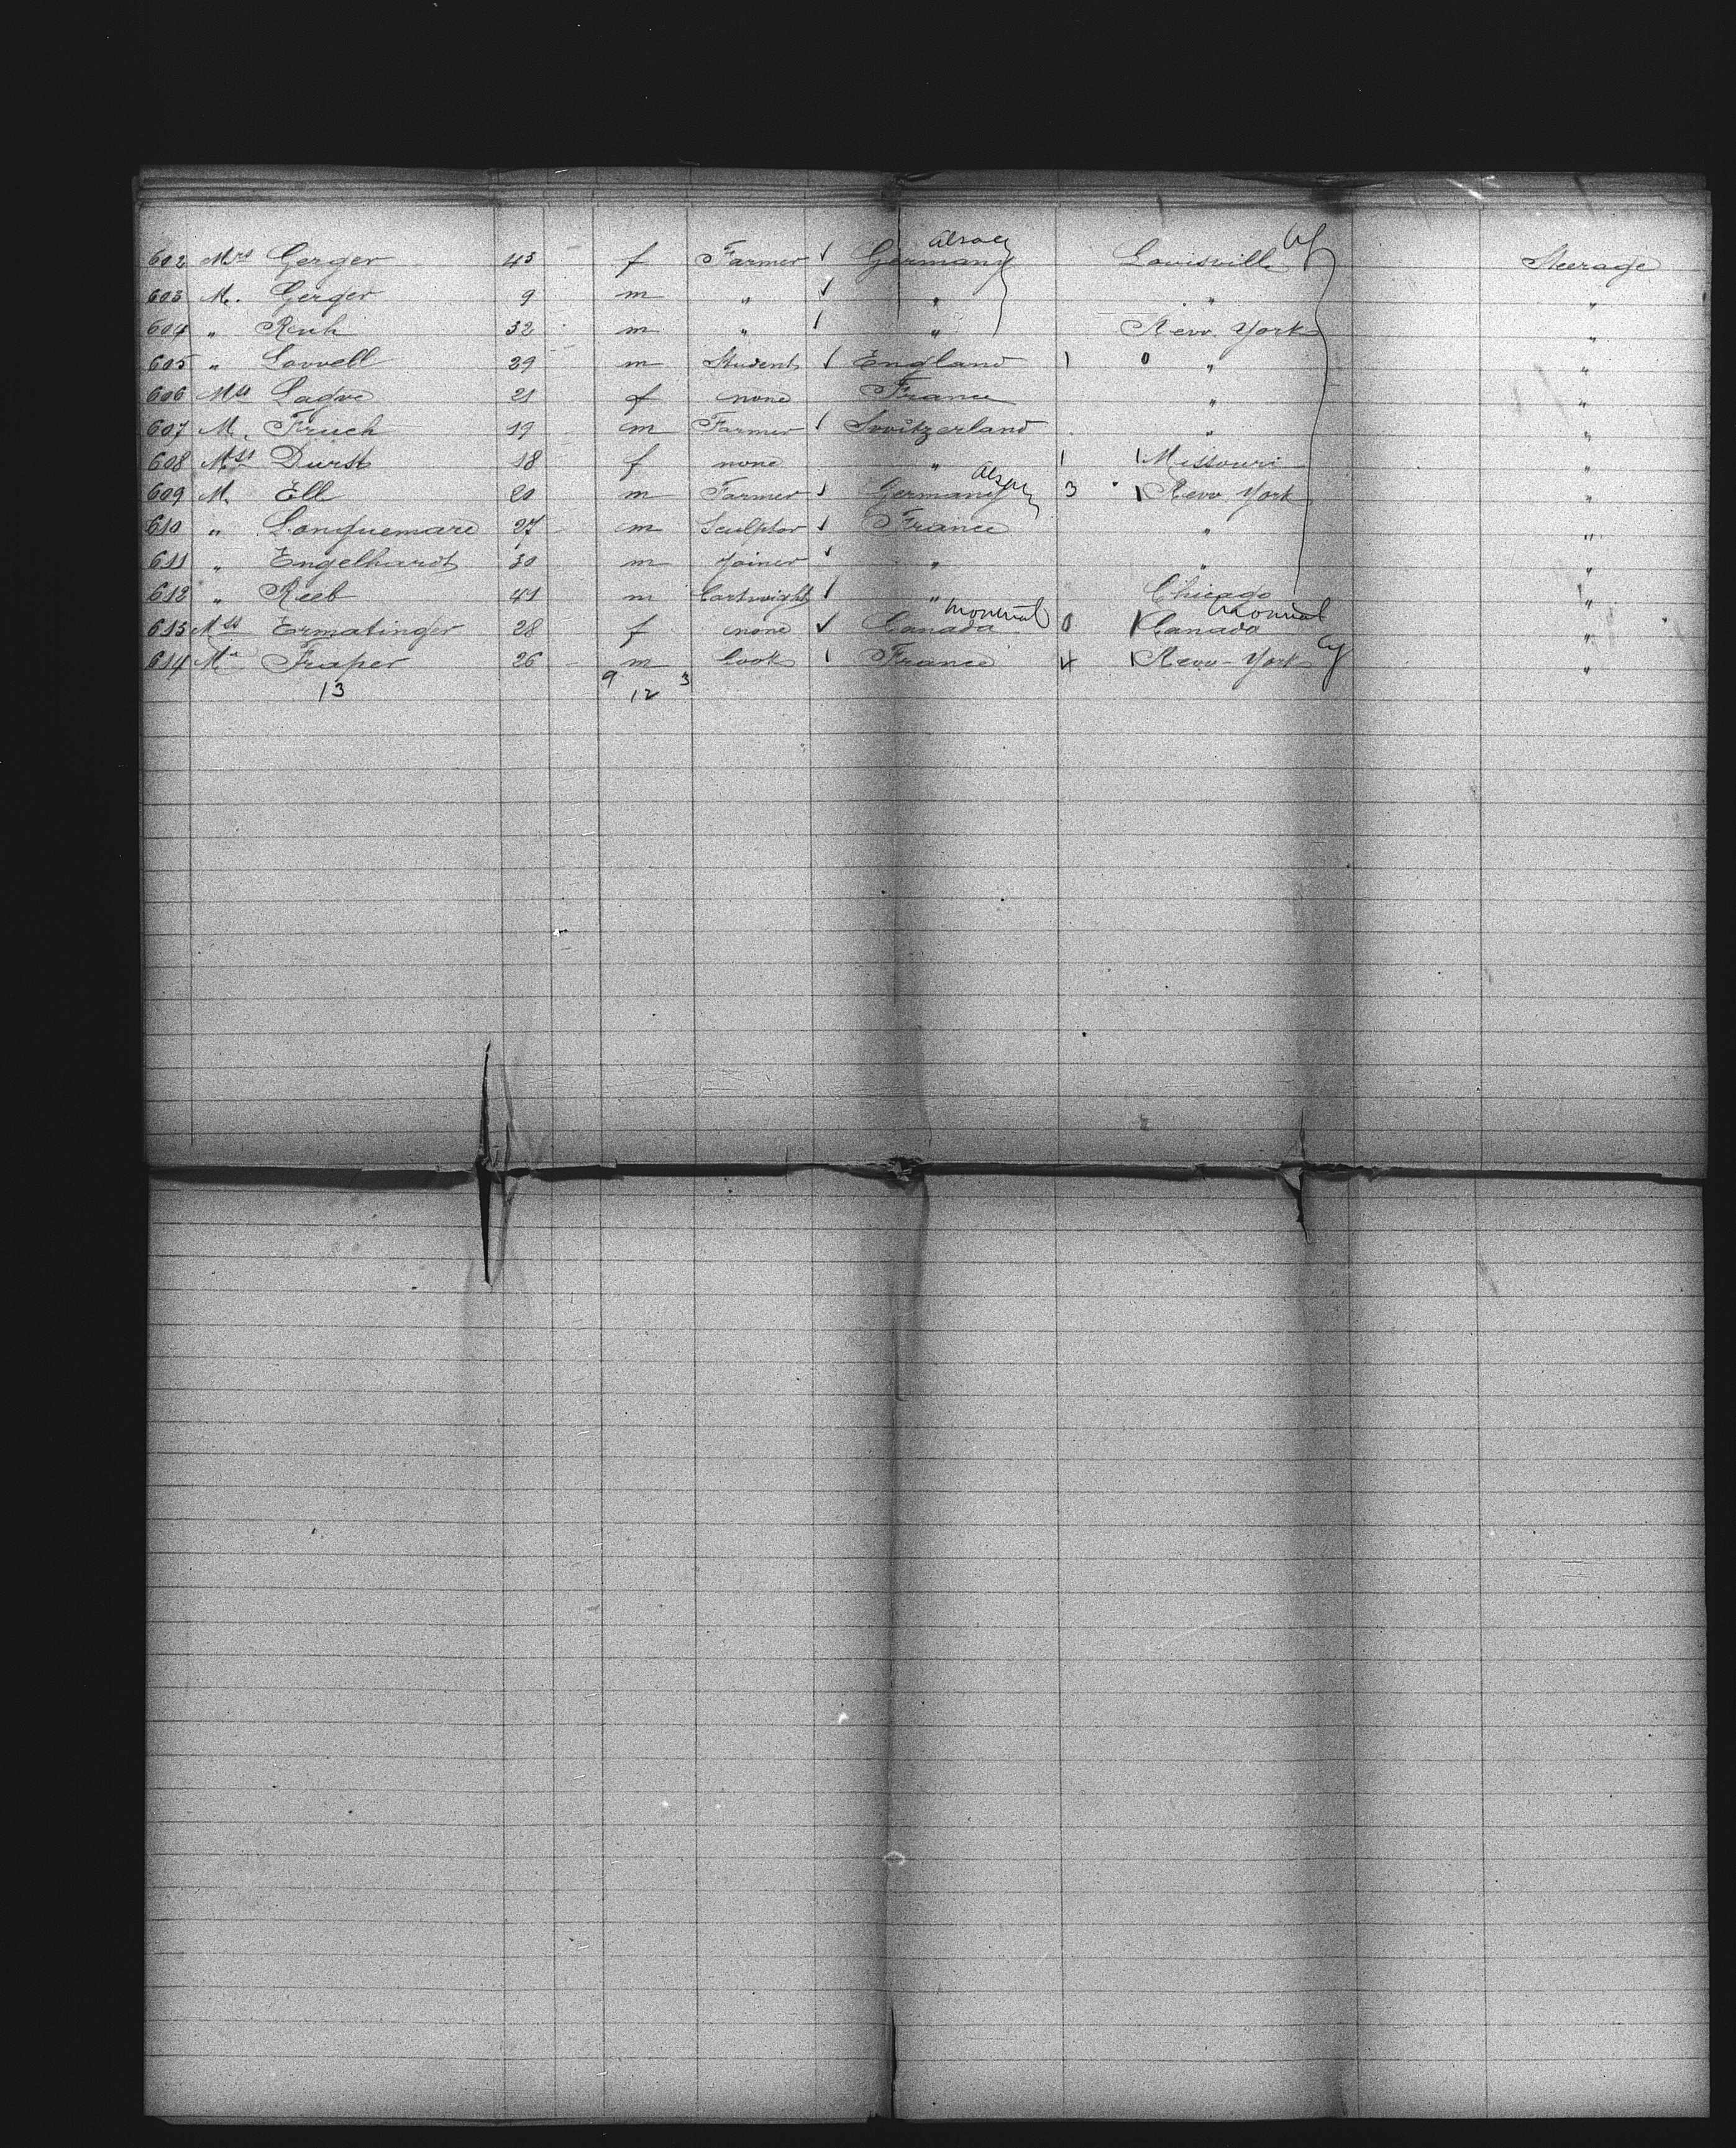 602 Mrs Gerger 45 f Farmer Germany Alsace Louisville Steerage
603 M. Gerger 9 m " " " "
604 " Ruh 32 m " " New York "
605 " Lovvell 29 m Student England 1 0 " "
606 Mss Lagve 21 f none France " "
607 M. Fruch 19 m Farmer Switzerland " "
608 Mss Durst 18 f none " 1 Missouri "
609 M. Ell 20 m Farmer Germany Alsace 3 New York "
610 " Longuemare 27 m Sculptor France " "
611 " Engelhardt 30 m Joiner " " "
612 " Reeb 41 m Cartwright " Chicago "
613 Mss Ermatinger 28 f none Canada Montreal 0 Canada Montreal "
614 Mr Fraper 26 m Cook France 4 New-York "
13 9 12 3